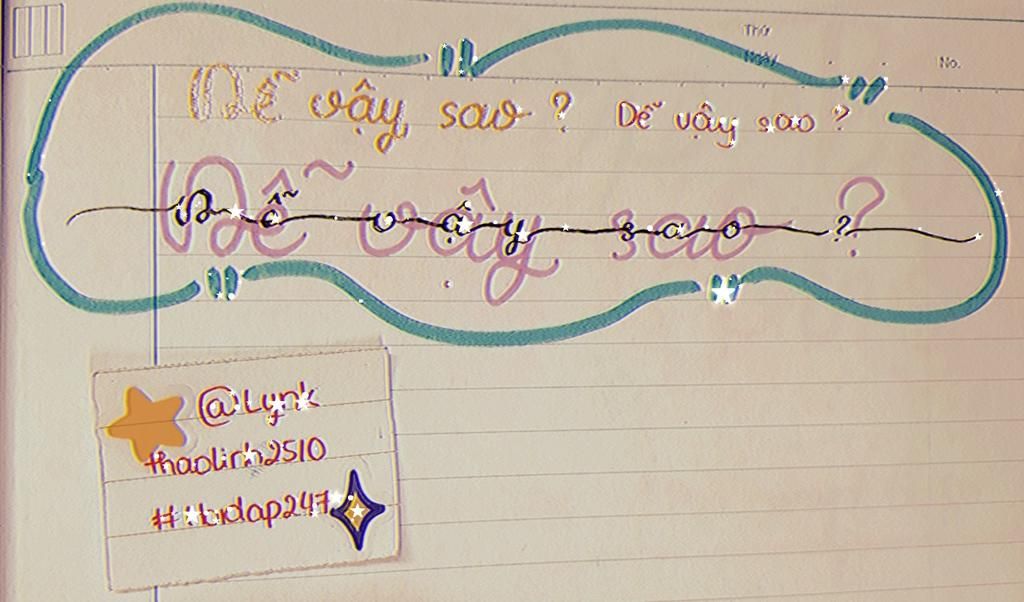 Thứ
Ngày
No.
Dễ vậy sao ? Dễ vậy sao ?
Dễ vậy sao ?
Dễ vậy sao ?
@Lynk
thaolinh2510
#Hoidap247